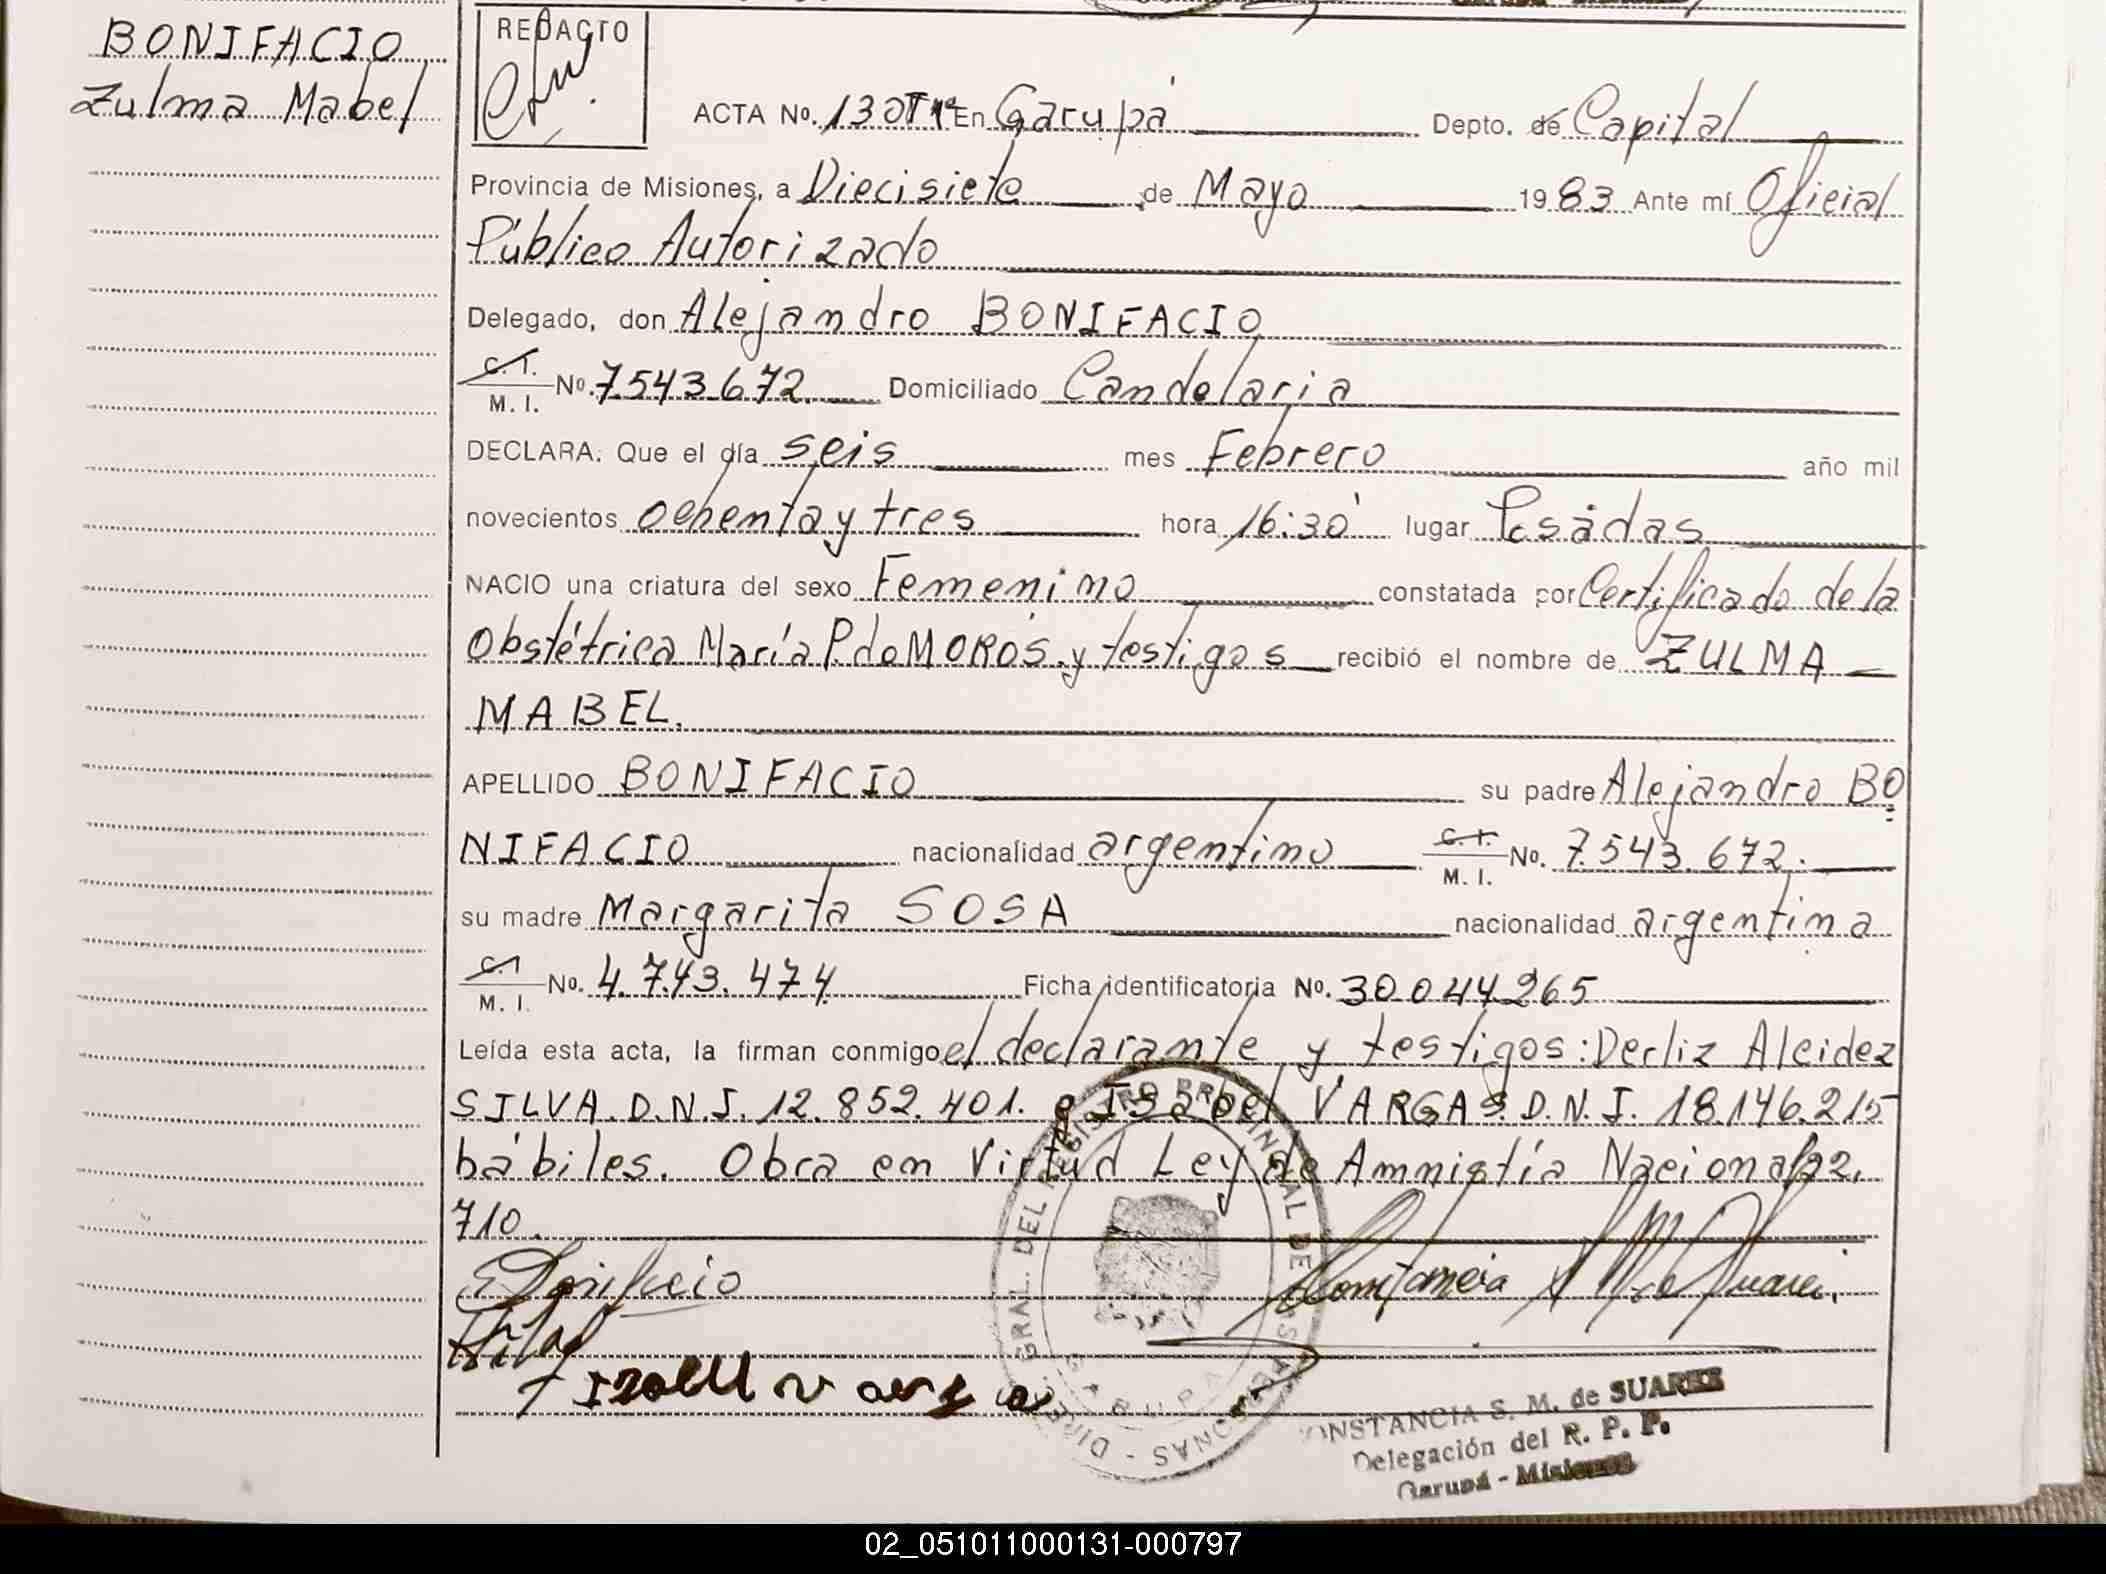 BONIFACIO
Zulma Mabel
REDACTO
ACTA No. 130 T 1º En Garupá Depto. de Capital
Provincia de Misiones, a Diecisiete de Mayo 1983 Ante mí Oficial
Público Autorizado
Delegado, don Alejandro BONIFACIO
C. I. M. I. No. 7.543.672. Domiciliado Candelaria
DECLARA: Que el día seis mes Febrero año mil
novecientos ochenta y tres hora 16:30' lugar Posadas
NACIO una criatura del sexo Femenino constatada por Certificado de la
Obstétrica María P. de MOROS y testigos recibió el nombre de ZULMA
MABEL.
APELLIDO BONIFACIO su padre Alejandro BO
NIFACIO nacionalidad argentino C. I. M. I. No. 7.543.672.
su madre Margarita SOSA nacionalidad argentina
C. I. M. I. No. 4.743.474 Ficha identificatoria No. 30044265
Leída esta acta, la firman conmigo el declarante y testigos: Derliz Alcidez
SILVA. D.N.I. 12.852.401. e Isabel VARGAS. D.N.I. 18.146.215
hábiles. Obra en Virtud Ley de Amnistía Nacional 22.
710.
DIREC. GRAL. DEL REGISTRO PROVINCIAL DE LAS PERSONAS
GARUPA
CONSTANCIA S. M. de SUAREZ
Delegación del R. P. P.
Garupá - Misiones
02_051011000131-000797